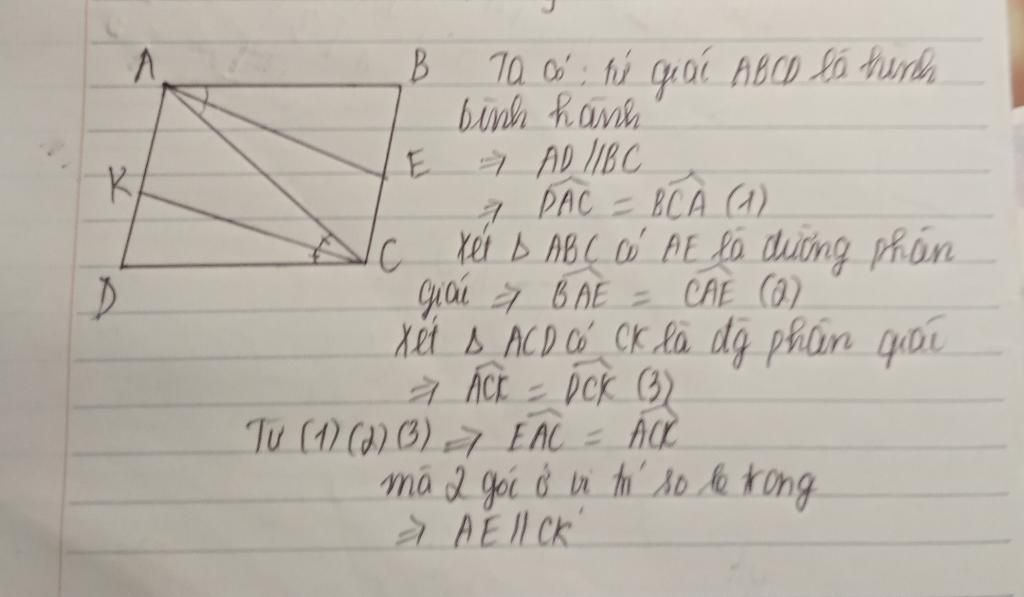 A
B
E
K
C
D
Ta có: tứ giác ABCD là hình
bình hành
=> AD//BC
=> DAC = BCA (1)
Xét Δ ABC có AE là đường phân
giác => BAE = CAE (2)
Xét Δ ACD có CK là đg phân giác
=> ACK = DCK (3)
Từ (1) (2) (3) => EAC = ACK
mà 2 góc ở vị trí so le trong
=> AE//CK